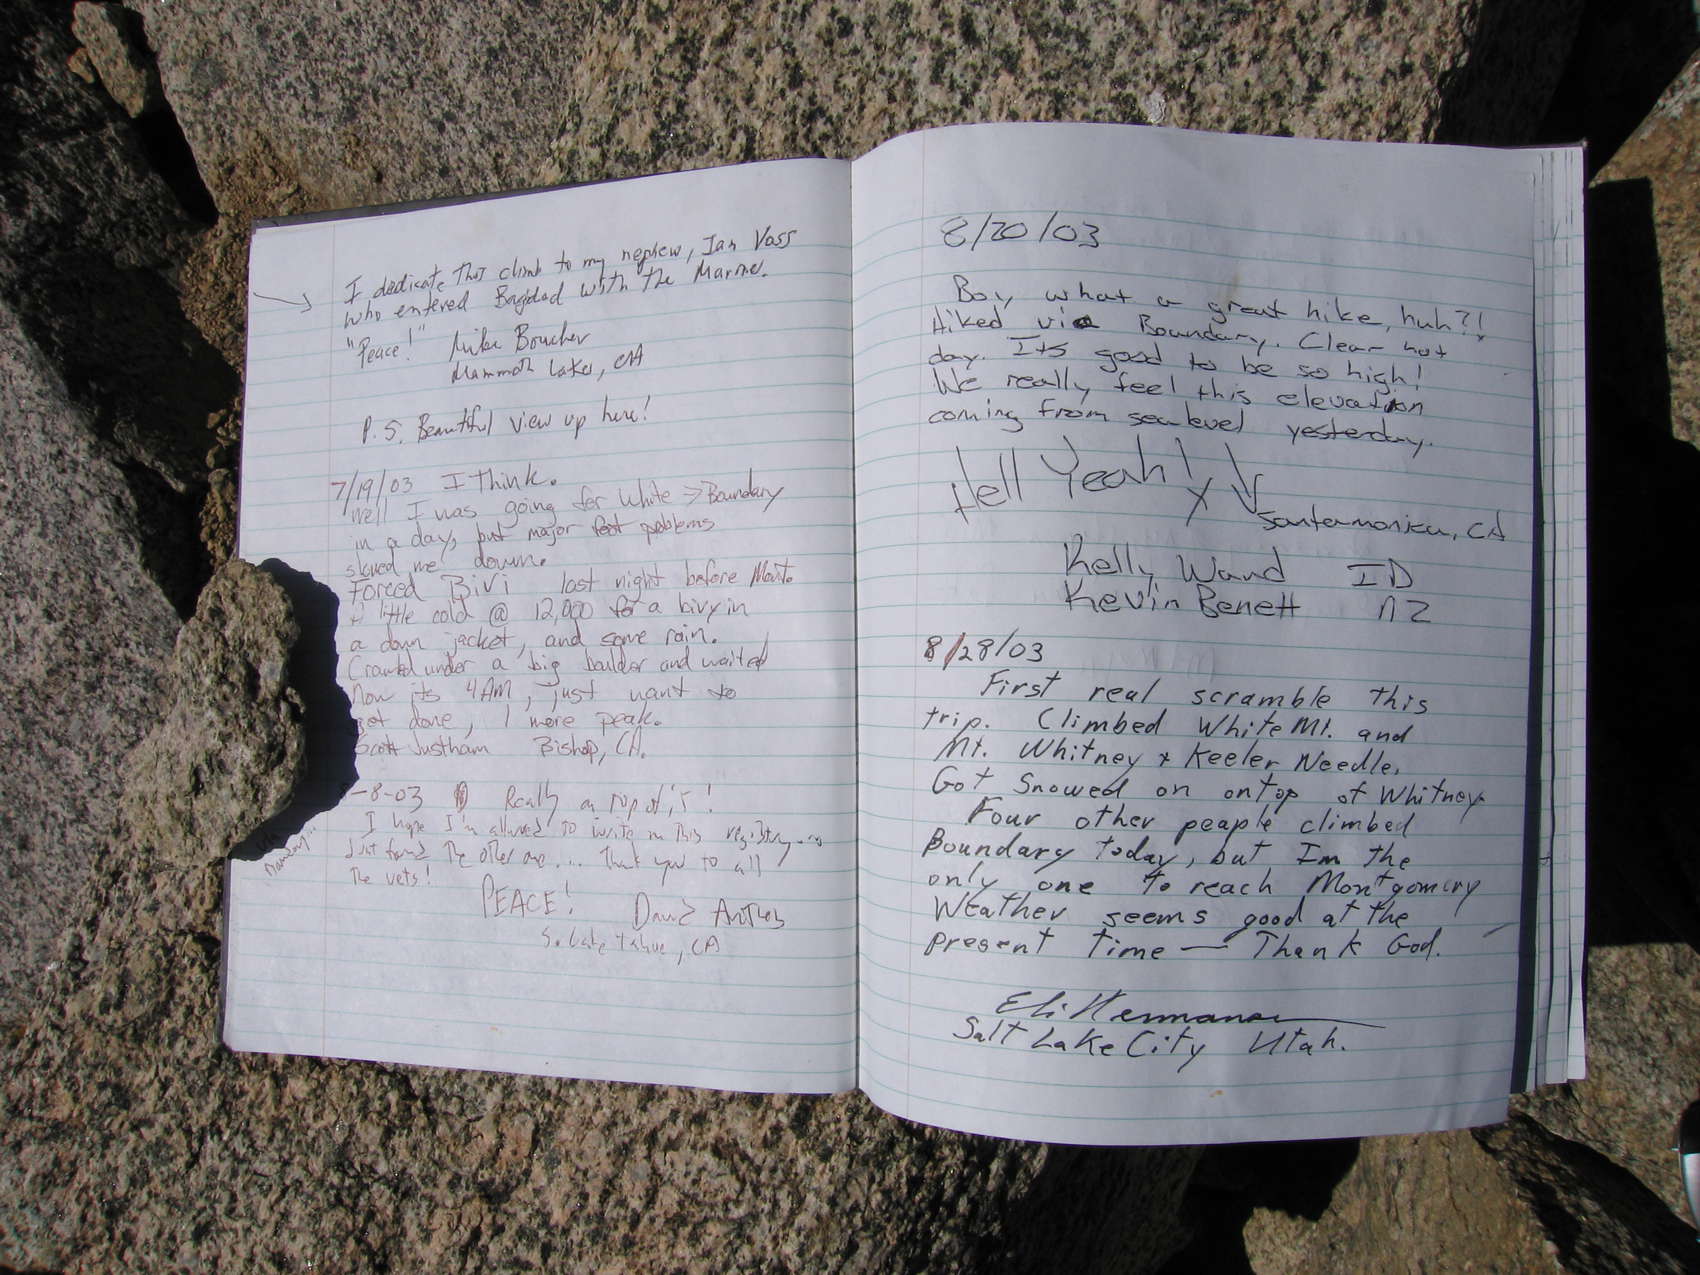 I dedicate this climb to my nephew, Ian Voss
who entered Bagdad with the Marine.
"Peace!" Mike Boucher
Mammoth Lakes, CA
P.S. Beautiful view up here!
7/19/03 I Think.
Well I was going for White → Boundary
in a day, but major problems
slowed me down.
Forced Bivi last night before Mont.
little cold @ 12,000 for a bivy in
a down jacket, and some rain.
Crawled under a big boulder and waited
Now its 4AM, just want to
get done, 1 more peak.
Scott Justham Bishop, CA.
-8-03 Really on top of it!
I hope I'm allowed to write in this registry...
Just found the other one.... Thank you to all
The vets!
PEACE! David
S. Lake Tahoe, CA
8/20/03
Boy what a great hike, huh?!
Hiked via Boundary. Clear hot
day. Its good to be so high!
We really feel this elevation
coming from sea level yesterday.
Hell Yeah!
Santa monica, CA
Kelly Ward ID
Kevin Benett NZ
8/28/03
First real scramble this
trip. Climbed White Mt. and
Mt. Whitney + Keeler Needle.
Got Snowed on ontop of Whitney.
Four other people climbed
Boundary today, but Im the
only one to reach Montgomery
Weather seems good at the
present time — Thank God.
Eli Hermansen
Salt Lake City Utah.